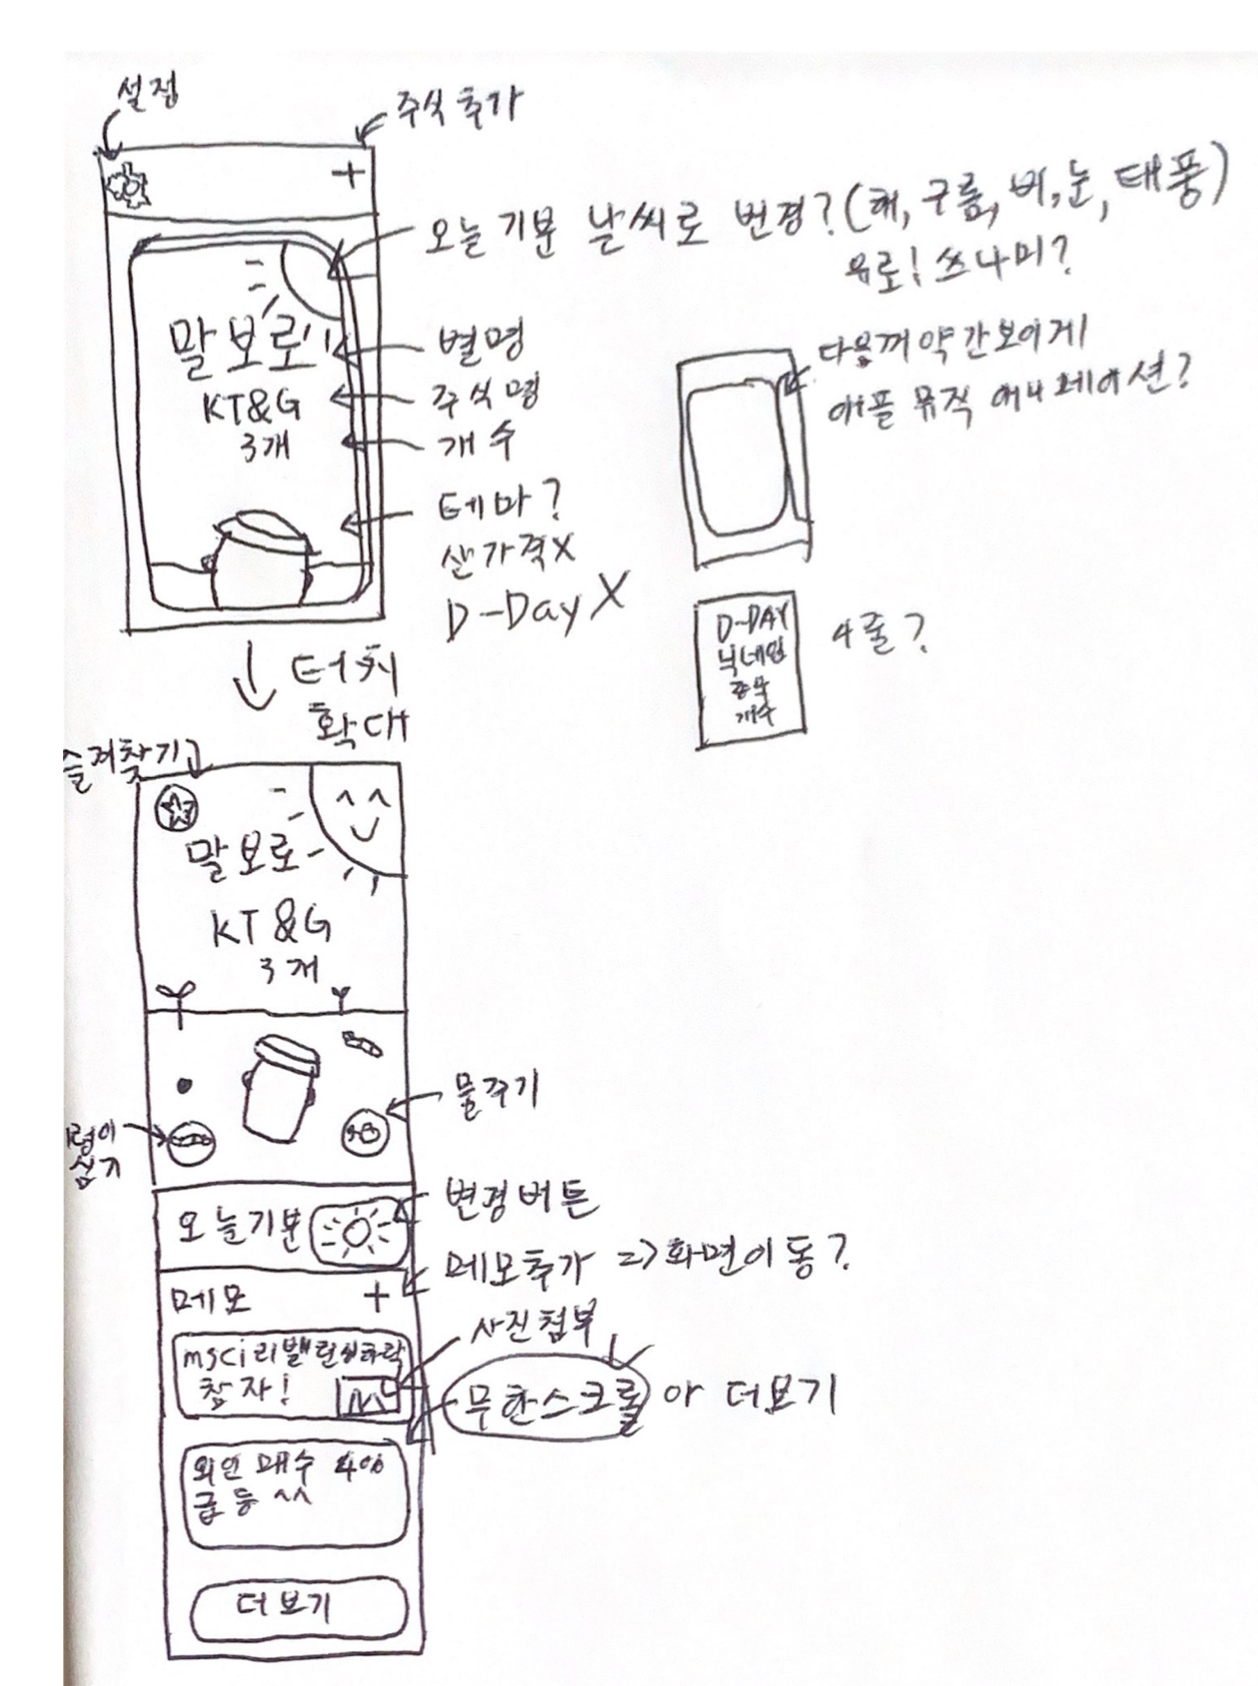 설정
주식 추가
+
오늘 기분 날씨로 변경? (해, 구름, 비, 눈, 태풍)
유료! 쓰나미?
말보로
별명
KT&G
주식명
3개
개수
테마?
산가격X
D-Day X
다음꺼 약간보이게
애플 뮤직 애니메이션?
D-DAY
닉네임
종목
개수
4줄?
터치
확대
즐겨찾기
말보로
KT&G
3개
물주기
심기
오늘기분
변경버튼
메모 +
메모추가 => 화면이동?
사진첨부
msci 리밸런싱하락
참자!
무한스크롤 or 더보기
외인 매수 4%
급등 ^^
더보기